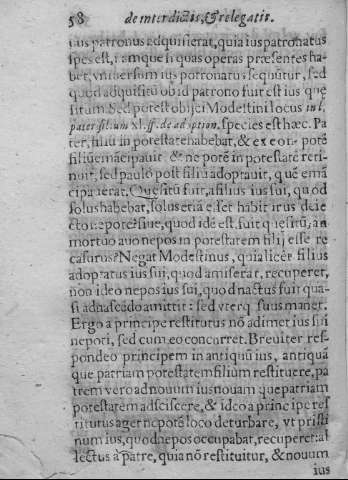 58 de interdictis, & relegatis.
ius patronus adquisierat, quia ius patronatus
spes est, namque si quas operas præsentes ha-
bet, vniuersum ius patronatus sequūtur, sed
quod adquisitū ob id patrono fuit est ius quę
situm. Sed potest obijci Modestini locus in l.
pater filium xl. ff. de adoption. species est hæc. Pa
ter, filiū in potestate habebat, & ex eo nepotē
filiū emācipauit & nepotē in potestate reti-
nuit, sed paulò post filiū adoptauit, quē emā
cipauerat. Quęsitū fuit, a filius ius sui, quod
solus habebat, solus etiā esset habiturus deie
cto nepote, siue, quod idē est, fuit quęsitū, an
mortuo auo nepos in potestatem filij esse re
casurus? Negat Modestinus, quia licèt filius
adoptatus ius sui, quod amiserat, recuperet,
non ideo nepos ius sui, quod nactus fuit qua-
si adnascēdo amittit: sed vterq; suus manet.
Ergo a principe restitutus nō adimet ius sui
nepori, sed cum eo concurret. Breuiter res-
pondeo principem in antiquū ius, antiquā
que patriam potestatem filium restituere, pa
trem vero ad nouum ius nouam que patriam
potestatem adsciscere, & ideo a principe res
titutus ager nepotē loco deturbare, vt pristi
num ius, quod nepos occupabat, recuperet: al
lectus à patre, quia nō restituitur, & nouum
ius